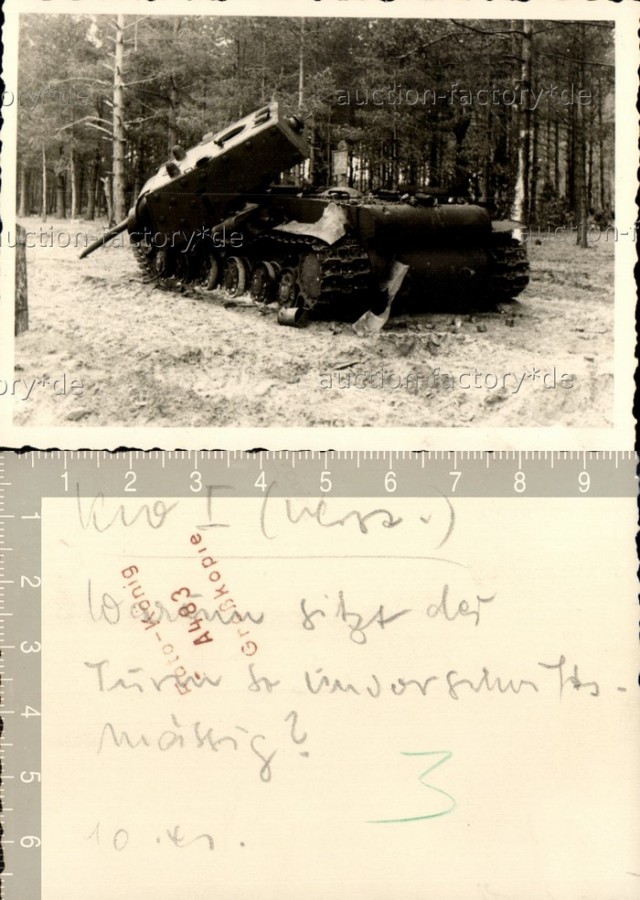 auction-factory*de
auction-factory*de
auction-factory*de
auction-factory*de
auction-factory*de
1 2 3 4 5 6 7 8 9
1
2
3
4
5
6
I (
Warum sitzt der
Turm so unvorschrifts-
mässig?
3
10.
Foto-König
A483
Großkopie